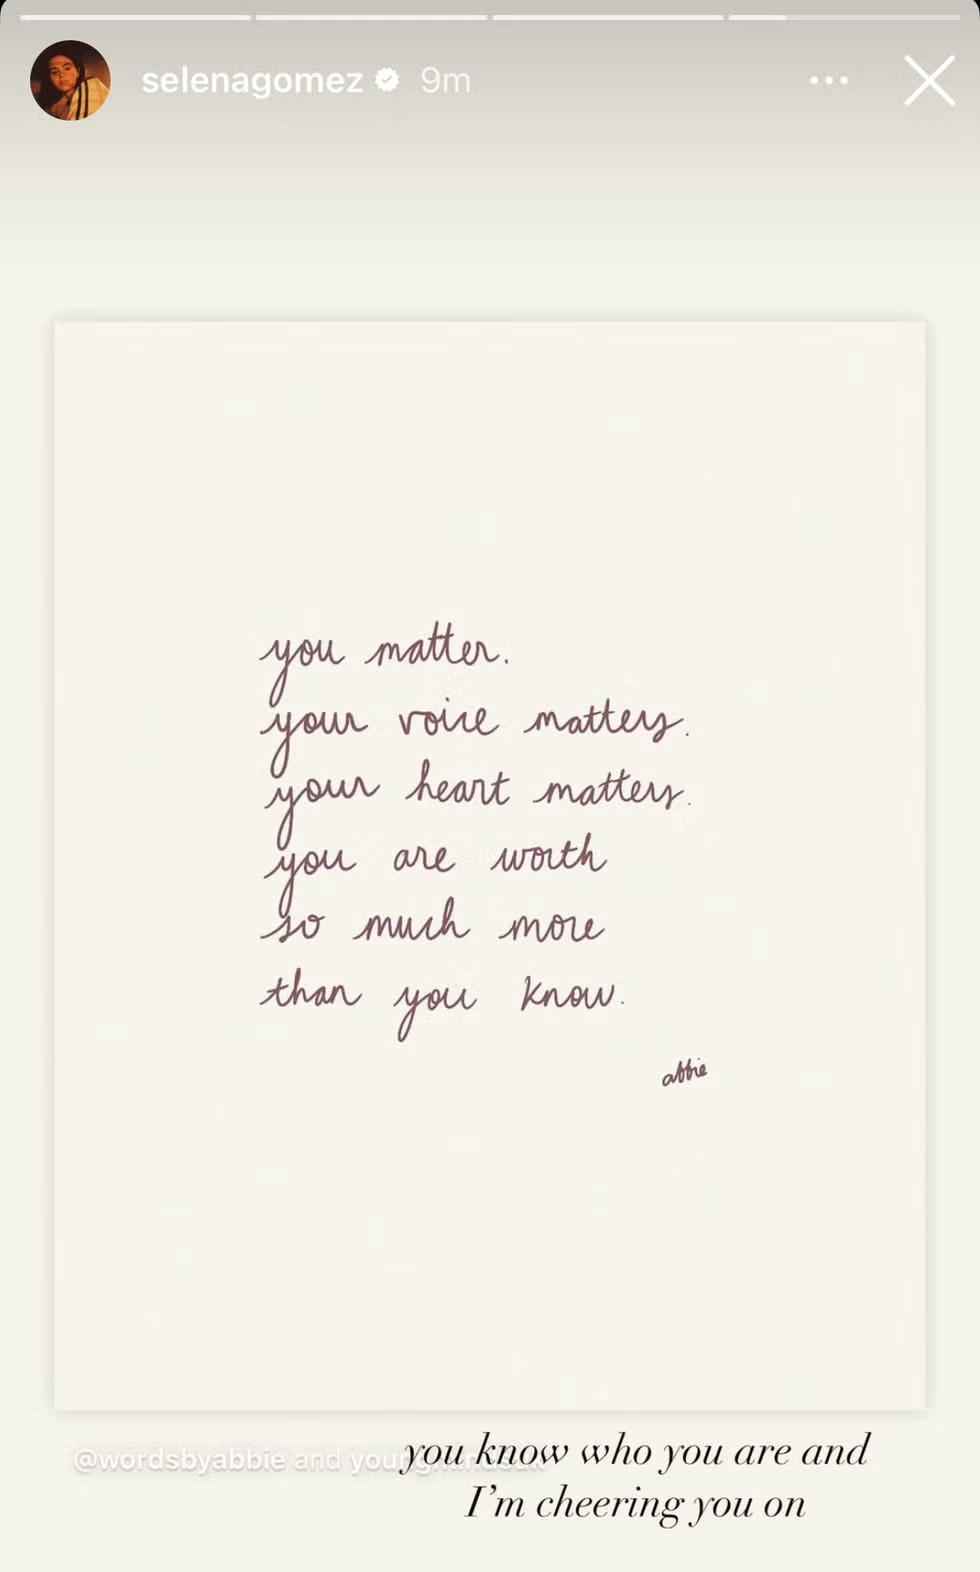 selenagomez 9m
you matter.
your voice matters.
your heart matters.
you are worth
so much more
than you know.
abbie
@wordsbyabbie and
you know who you are and
I'm cheering you on